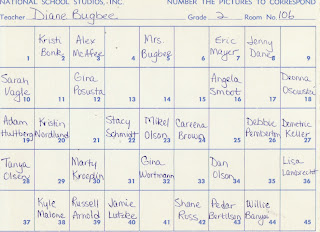 NATIONAL SCHOOL STUDIOS, INC. NUMBER THE PICTURES TO CORRESPOND
Teacher Diane Bugbee Grade 2 Room No. 106
Kristi Bonk Alex McAfee Mrs. Bugbee Eric Mayer Jenny Dano
1 2 3 4 5 6 7 8 9
Sarah Vagle Gina Posusta Angela Smbot Deonna Oscuiska
10 11 12 13 14 15 16 17 18
Adam Hultberg Kristin Nordlund Stacy Schmidt Mikel Olson Careena Brown Debbie Pemberton Demetric Keller
19 20 21 22 23 24 25 26 27
Tanya Olsen Marty Kroeplin Gina Wortmann Dan Olson Lisa Lambrecht
28 29 30 31 32 33 34 35 36
Kyle Malone Russell Arnold Jamie Lutzke Shane Ross Pedar Bertilson Willie Banya
37 38 39 40 41 42 43 44 45